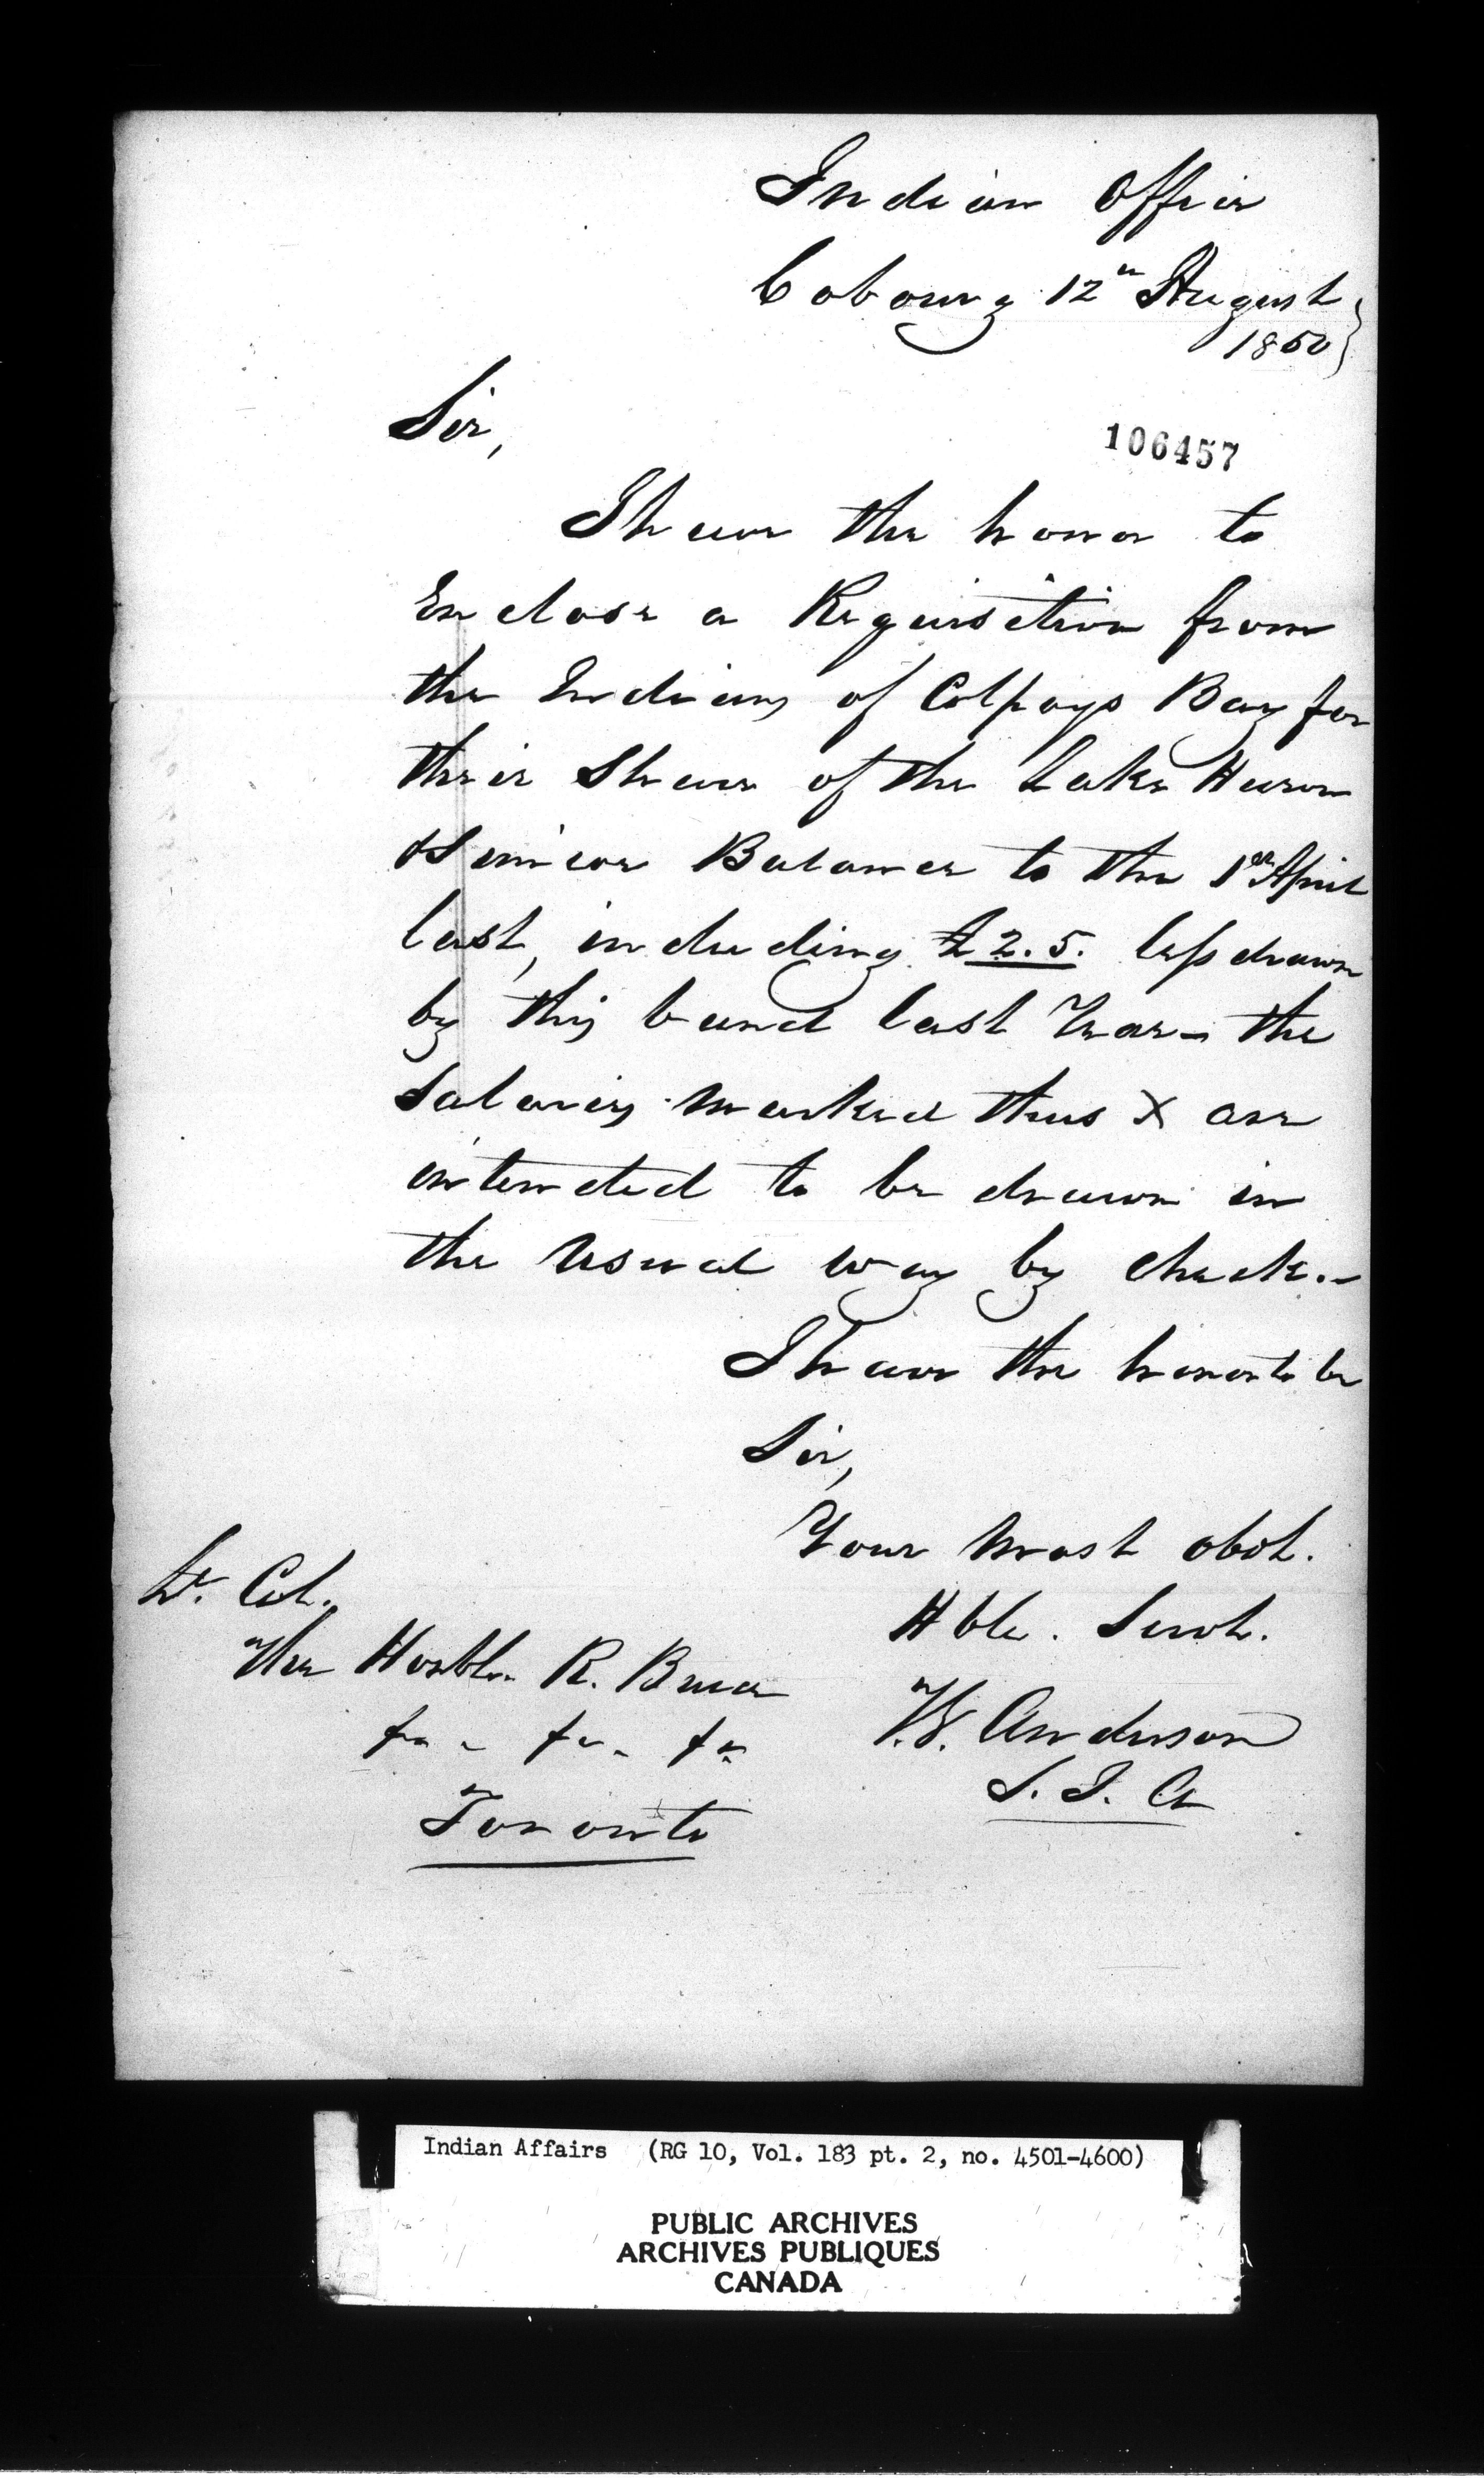 Indian Office
Cobourg 12th August
1850
Sir,
106457
I have the honor to
Enclose a Requisition from
the Indians of Colpoys Bay for
their Share of the Lake Huron
& Simcoe Balance to the 1st April
last, including £2.5. less drawn
by this band last Year - the
Salaries marked thus X are
intended to be drawn in
the usual way by check.-
I have the honor to be
Sir,
Your most obdt.
Hble. Servt.
T.G. Anderson
S. I. A
Lt. Col.
The Honble. R. Bruce
&c - &c - &c
Toronto
Indian Affairs (RG 10, Vol. 183 pt. 2, no. 4501-4600)
PUBLIC ARCHIVES
ARCHIVES PUBLIQUES
CANADA